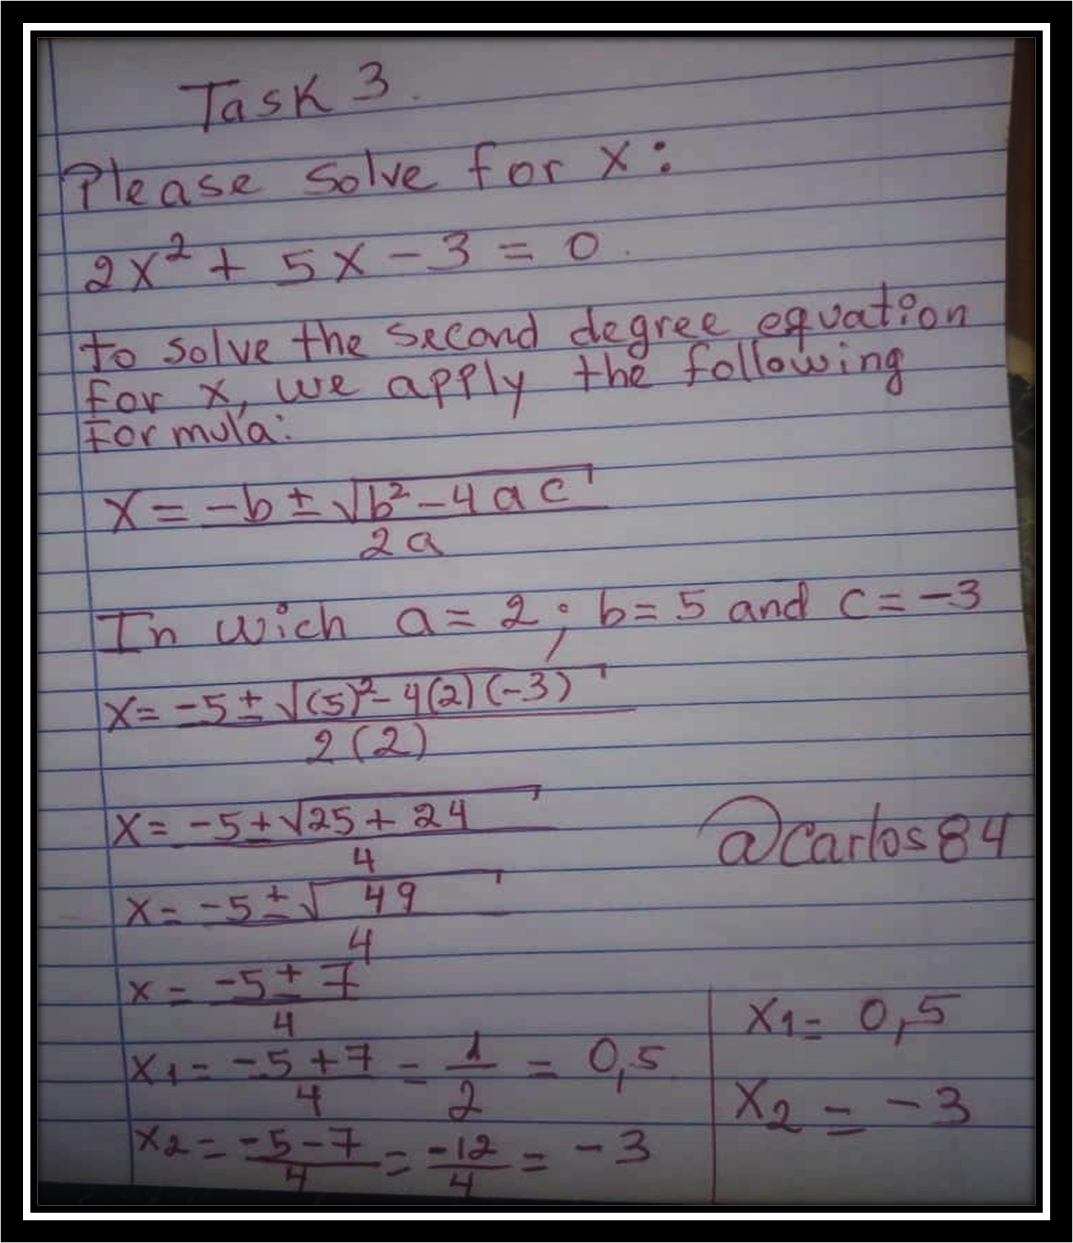 Task 3.
Please solve for x:
2x² + 5x - 3 = 0.
to solve the second degree equation
for x, we apply the following
formula:
x = -b ± √b² - 4ac
2a
In wich a = 2; b = 5 and c = -3
x = -5 ± √(5)² - 4(2)(-3)
2(2)
x = -5 ± √25 + 24
4
@Carlos84
x = -5 ± √49
4
x = -5 ± 7
4
x1 = -5 + 7 = 1 = 0,5
4 2
x2 = -5 - 7 = -12 = -3
4 4
x1 = 0,5
x2 = -3